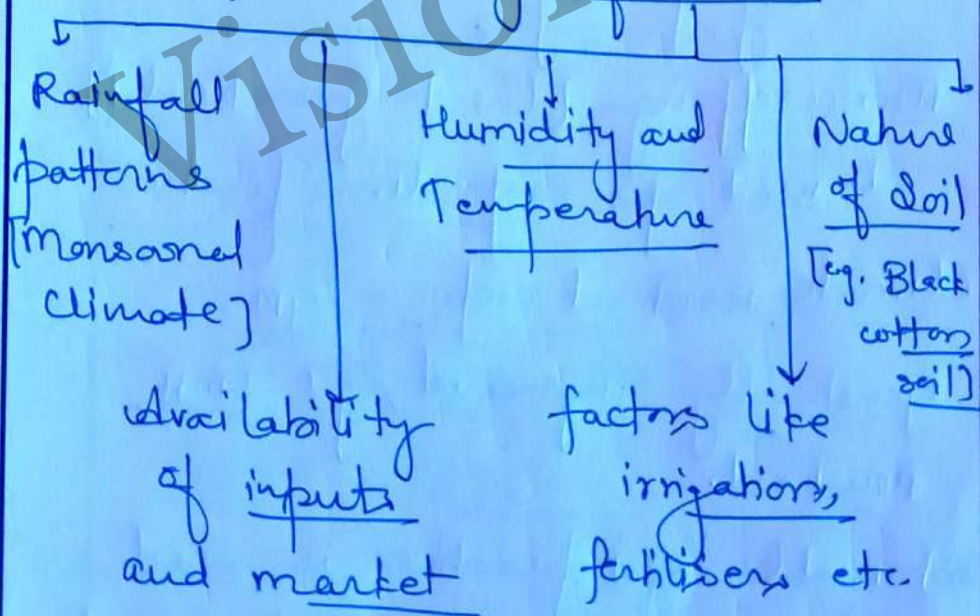 Rainfall
patterns
[Monsoonal
Climate]
Humidity and
Temperature
Nature
of Soil
[eg. Black
cotton
soil]
Availability
of inputs
and market
factors like
irrigation,
fertilisers etc.